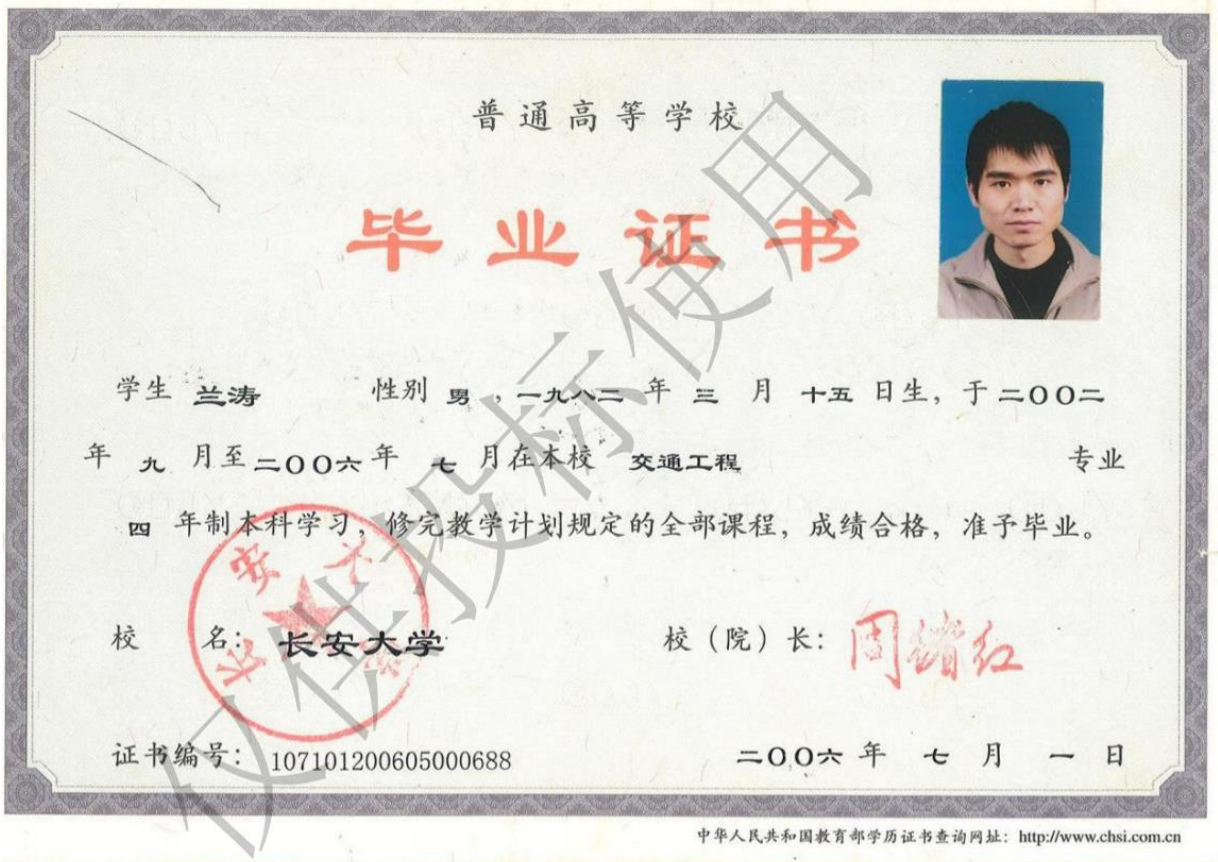 普通高等学校
毕业证书
学生 兰涛 性别 男 ,一九八二 年 三 月 十五 日生, 于 二〇〇二
年 九 月至 二〇〇六 年 七 月在本校 交通工程 专业
四 年制本科学习, 修完教学计划规定的全部课程, 成绩合格, 准予毕业。
校 名: 长安大学 校(院)长: 周绪红
长安大学
证书编号: 107101200605000688 二〇〇六 年 七 月 一 日
中华人民共和国教育部学历证书查询网址: http://www.chsi.com.cn
仅供投标使用